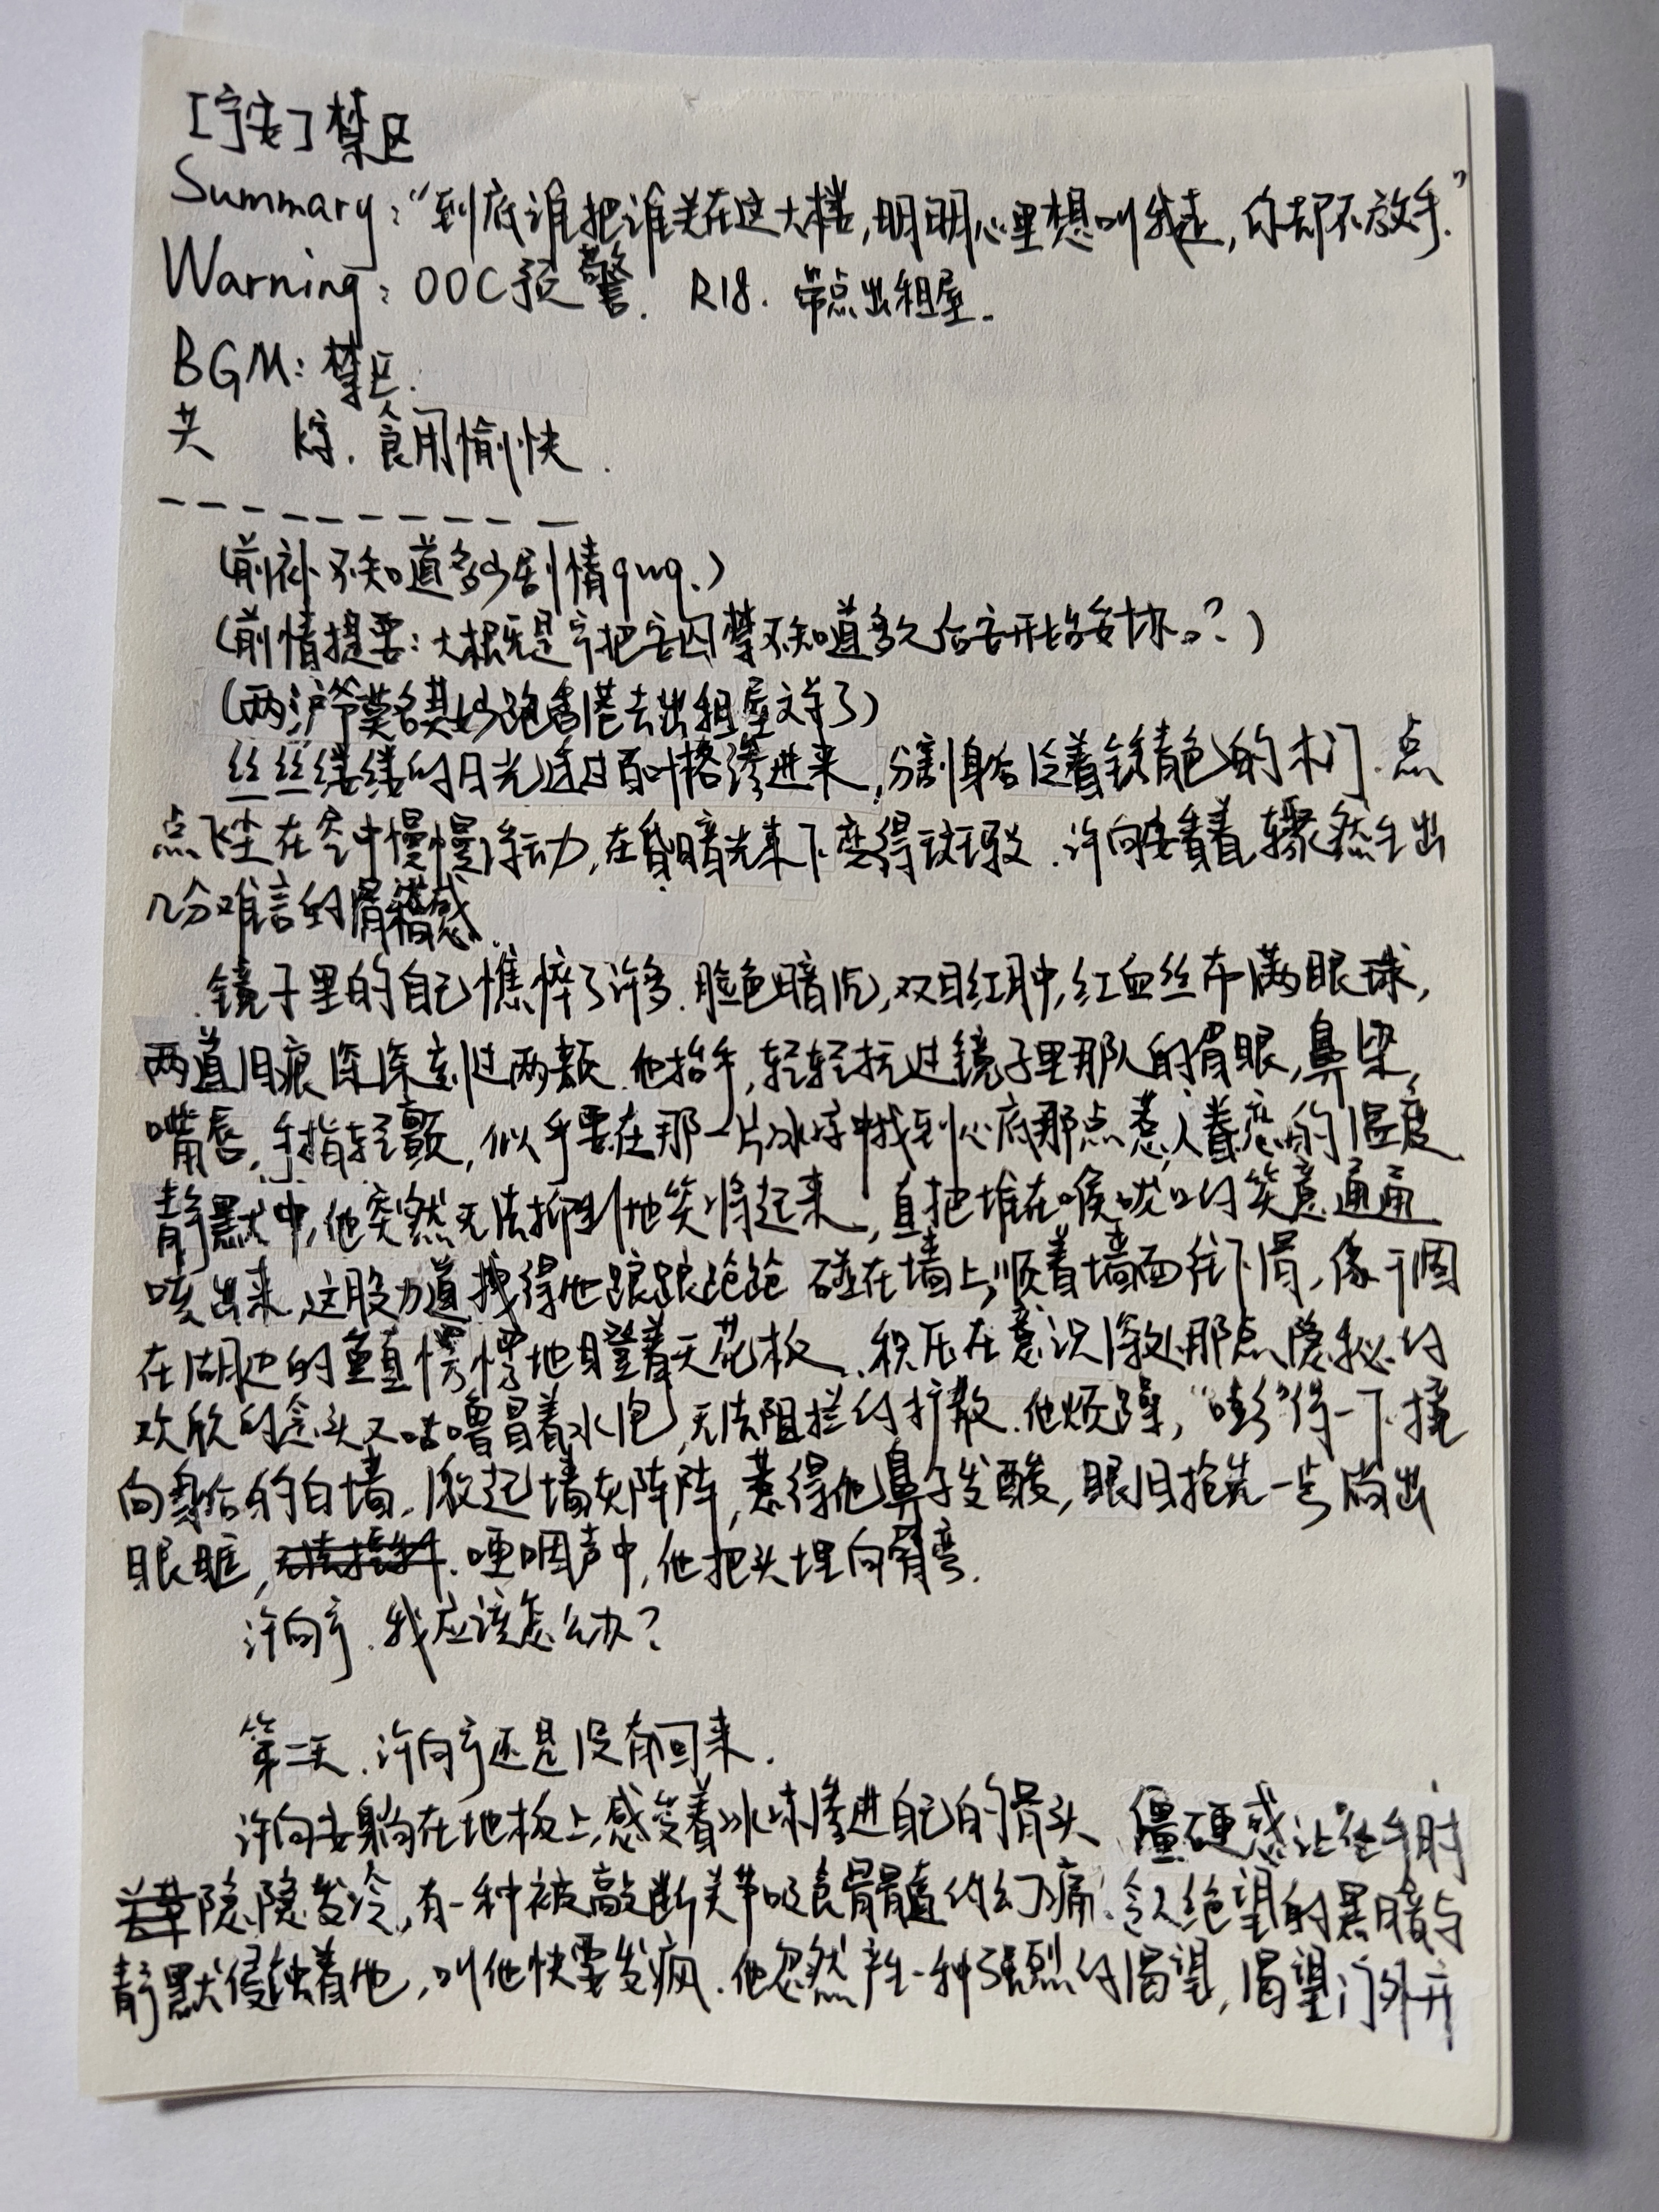 [宁安] 禁区
Summary:“到底谁把谁关在这大楼,明明心里想叫我走,你却不放手.”
Warning: OOC预警. R18. 带点出租屋.
BGM: 禁区.
共 食用愉快.
(前补不知道多少剧情qwq.)
(前情提要: 大概是宁把安囚禁不知道多久后安开始妥协。?)
(两沪爷莫名其妙跑香港去出租屋文学了)
丝丝缕缕的日光透过百叶格渗进来,分割身后泛着铁青色的木门.点
点飞尘在空中慢慢浮动,在昏暗光束下变得斑驳.许向安看着,骤然生出
几分难言的滑稽感.
镜子里的自己憔悴了许多.脸色暗沉,双目红肿,红血丝布满眼球,
两道泪痕深深刻过两颊.他抬手,轻轻抚过镜子里那人的眉眼,鼻梁,
嘴唇,手指轻颤,似乎要在那一片冰冷中找到心底那点惹人眷恋的温度.
静默中,他突然无法抑制地笑将起来,直把堆在喉咙口的笑意通通
咳出来,这股力道拽得他踉踉跄跄碰在墙上,顺着墙面往下滑,像干涸
在湖边的鱼直愣愣地瞪着天花板.积压在意识深处那点隐秘的
欢欣的念头又咕噜冒着水泡,无法阻拦的扩散.他烦躁,“嘭”得一下撞
向身后的白墙.激起墙灰阵阵,惹得他鼻子发酸,眼泪抢先一步淌出
眼眶,哽咽声中,他把头埋向臂弯.
许向宁.我应该怎么办?
第二天.许向宁还是没有回来.
许向安躺在地板上,感受着冰凉渗进自己的骨头.僵硬感让他手肘
隐隐发冷,有一种被敲断关节吸食骨髓的幻痛.令人绝望的黑暗与
静默侵蚀着他,叫他快要发疯.他忽然产生一种强烈的渴望,渴望门外开